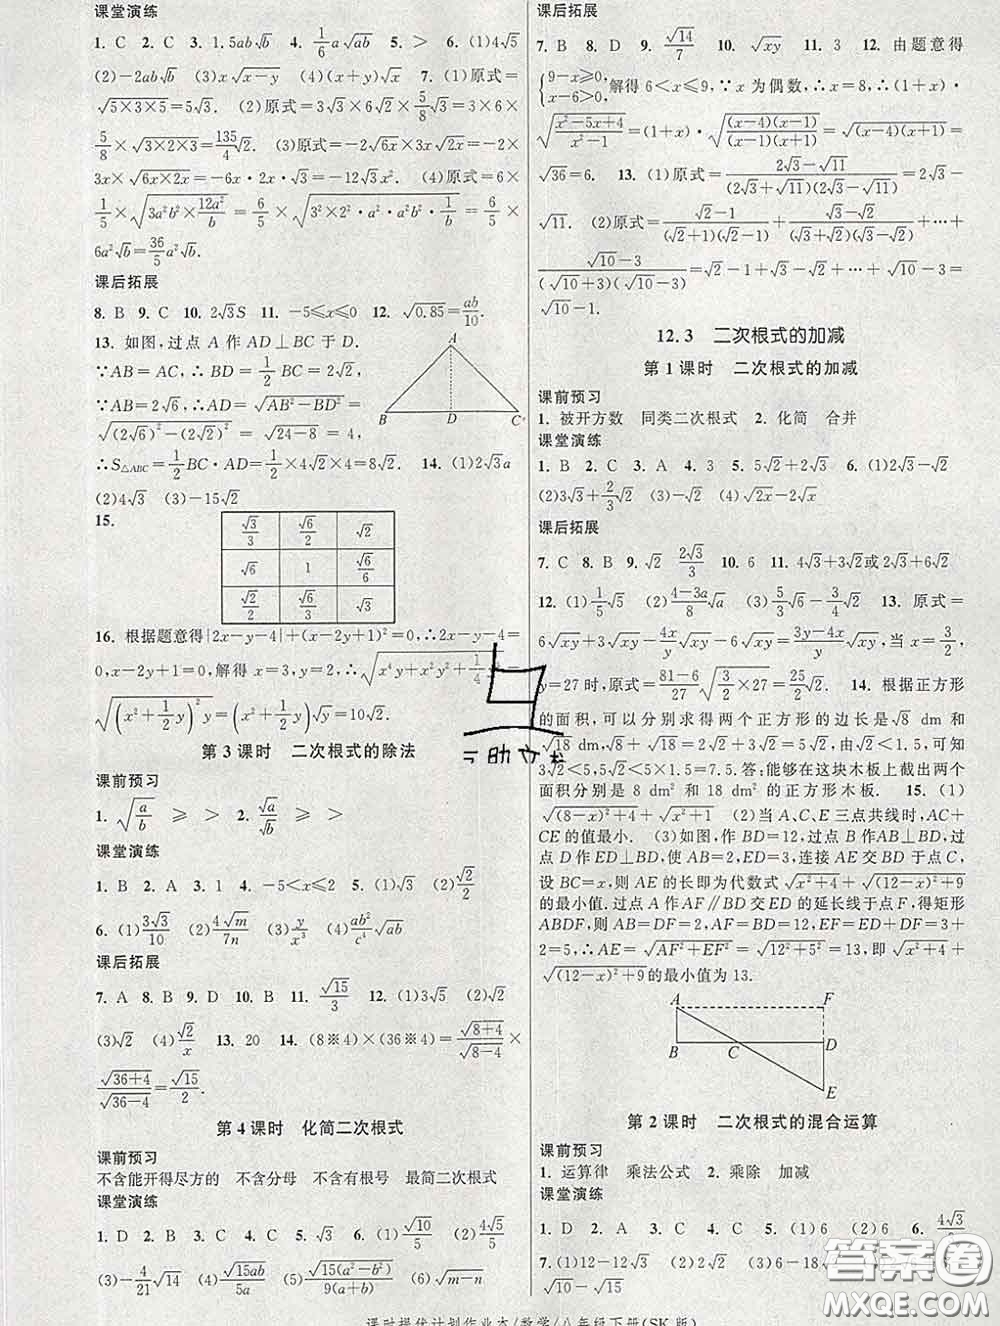 课堂演练
1. C 2. C 3. 1.5ab√b 4. 1/6 a√ab 5. > 6. (1)4√5
(2)-2ab√b (3)x√(x-y) (4)(x+y)√x 7. (1)原式=
√(5×3×5)=5√3. (2)原式=3√3×6√2×5/8√3=3×6×
5/8×√(3×2×3)=135/4√2. (3)原式=-2√6x×3√2x=-2×
3x×√(6x×2x)=-6x·2x·√3=-12√3x². (4)原式=6×
1/5×√(3a²b²×12a²/b)=6/5×√(3²×2²·a²·a²·b)=6/5×
6a²√b=36/5a²√b.
课后拓展
8. B 9. C 10. 2√3S 11. -5≤x≤0 12. √0.85=ab/10.
13. 如图,过点 A 作 AD⊥BC 于 D.
∵AB=AC,∴BD=1/2BC=2√2.
∵AB=2√6,∴AD=√(AB²-BD²)=
√((2√6)²-(2√2)²)=√(24-8)=4.
A
B D C
∴S△ABC=1/2BC·AD=1/2×4√2×4=8√2. 14. (1)2√3a
(2)4√3 (3)-15√2
15.
√3/3 √6/2 √2
√6 1 √6/6
√2/2 √6/3 √3
16. 根据题意得|2x-y-4|+(x-2y+1)²=0,∴2x-y-4=
0,x-2y+1=0,解得 x=3,y=2,∴√(x⁴y+x²y²+1/4y³)=
√((x²+1/2y)²y)=(x²+1/2y)√y=10√2.
第 3 课时 二次根式的除法
课前预习
1. √(a/b) ≥ > 2. √a/√b ≥ >
课堂演练
1. B 2. A 3. B 4. -5<x≤2 5. (1)√2 (2)√2/2
6. (1)3√3/10 (2)4√m/7n (3)y/x³ (4)ab²/c⁴√ab
课后拓展
7. A 8. B 9. D 10. B 11. √15/3 12. (1)3√5 (2)√2
(3)√2 (4)√2/x 13. 20 14. (8※4)×(36※4)=√(8+4)/√(8-4)×
√(36+4)/√(36-4)=√15/2.
第 4 课时 化简二次根式
课前预习
不含能开得尽方的 不含分母 不含有根号 最简二次根式
课堂演练
1. D 2. B 3. D 4. √3 5. (1)√10/5 (2)4√5/5
(3)-4/21√14 (4)√15ab/5a (5)√(15(a²-b²))/5 (6)√(m-n)
课后拓展
7. B 8. D 9. √14/7 10. √xy 11. 3 12. 由题意得
{9-x≥0, x-6>0,解得 6<x≤9,∵x 为偶数,∴x=8,∴(1+x)·
√((x²-5x+4)/(x²-1))=(1+x)·√((x-4)(x-1)/(x+1)(x-1))=√((x-4)(x+1))=
√36=6. 13. (1)原式=(2√3-√11)/((2√3+√11)(2√3-√11))=2√3-
√11. (2)原式=(√2-1)/((√2+1)(√2-1))+(√3-√2)/((√3+√2)(√3-√2))+…+
(√10-3)/((√10+3)(√10-3))=√2-1+√3-√2+…+√10-√9=
√10-1.
12.3 二次根式的加减
第 1 课时 二次根式的加减
课前预习
1. 被开方数 同类二次根式 2. 化简 合并
课堂演练
1. B 2. C 3. A 4. 3 5. 5√2+2√3 6. (1)2√3-√2
(2)3√3+2/3√2 (3)8√2-8√3 (4)√2x-2√x
课后拓展
7. C 8. B 9. √2 2√3/3 10. 6 11. 4√3+3√2或2√3+6√2
12. (1)1/5√5 (2)(4-3a)/8√a (3)5/6√3-3/4√2 13. 原式=
6√xy+3√xy-4x/y√xy-6√xy=(3y-4x)/y√xy,当 x=3/2,
y=27 时,原式=(81-6)/27√(3/2×27)=25/2√2. 14. 根据正方形
的面积,可以分别求得两个正方形的边长是√8 dm 和
√18 dm,√8+√18=2√2+3√2=5√2,∵√2<1.5,可知
3√2<5,5√2<5×1.5=7.5.答:能够在这块木板上截出两个
面积分别是 8 dm² 和 18 dm² 的正方形木板. 15. (1)
√((8-x)²+4)+√(x²+1) (2)当 A、C、E 三点共线时,AC+
CE 的值最小. (3)如图,作 BD=12,过点 B 作AB⊥BD,过
点 D 作ED⊥BD,使 AB=2,ED=3,连接 AE 交 BD 于点 C,
设 BC=x,则 AE 的长即为代数式√(x²+4)+√((12-x)²+9)
的最小值.过点 A 作AF∥BD 交ED 的延长线于点 F,得矩形
ABDF,则 AB=DF=2,AF=BD=12,EF=ED+DF=3+
2=5,∴AE=√(AF²+EF²)=√(12²+5²)=13,即√(x²+4)+
√((12-x)²+9)的最小值为 13.
A F
B C D
E
第 2 课时 二次根式的混合运算
课前预习
1. 运算律 乘法公式 2. 乘除 加减
课堂演练
1. D 2. A 3. C 4. C 5. (1)6 (2)6 6. 4√3/3
7. (1)12-12√3 (2)2√3-2 (3)6-18√
√10-√15
答案卷
课时提优计划作业本/数学/八年级下册(SK 版)